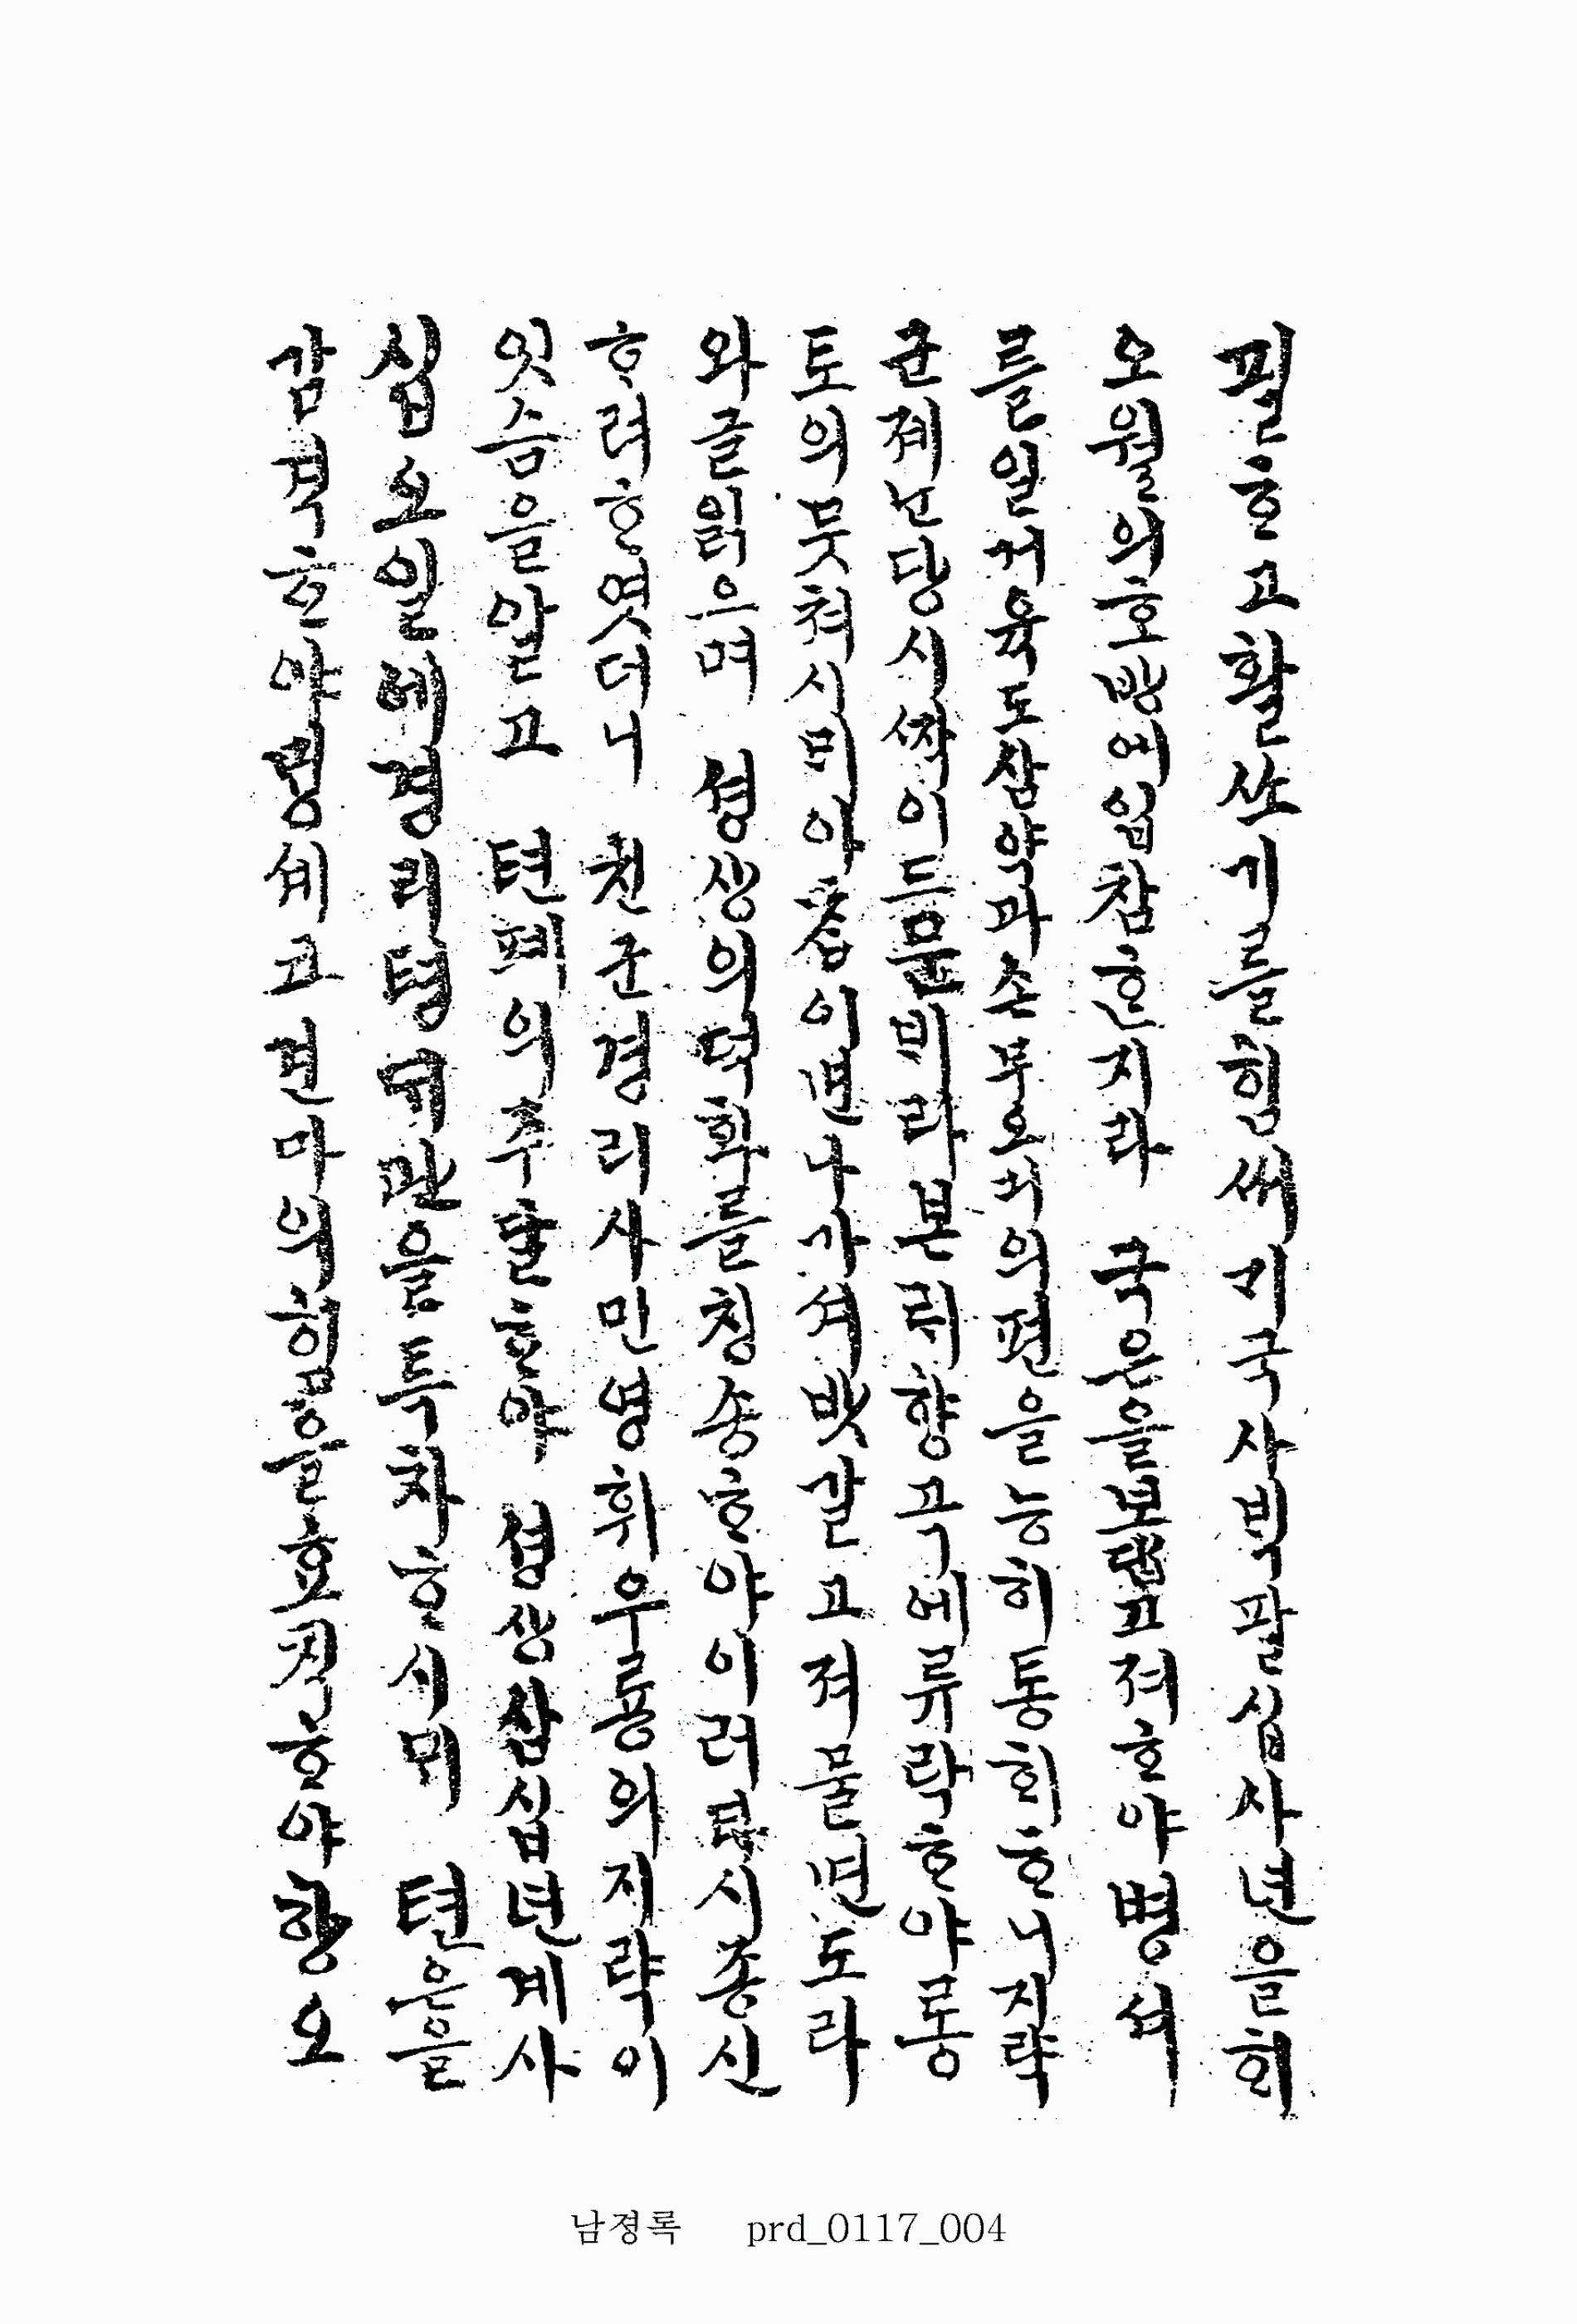 필ᄒᆞ고활쏘기를힘써ᄀᆡ국사ᄇᆡᆨ팔십사년을ᄒᆡ
오월의호방에입참ᄒᆞᆫ지라 국은을보답고져ᄒᆞ야병셔
를일거육도삼약과손무오긔의편을능히통회ᄒᆞ니지략
군졔난당시ᄶᅡᆨ이드문ᄇᆡ라본ᄅᆡ향곡에류락ᄒᆞ야롱
토의뭇쳐시ᄆᆡ아츰이면나가셔밧갈고져물면도라
와글읽으며 셩상의덕화를칭송ᄒᆞ야이러텃시종신
ᄒᆞ려ᄒᆞ엿더니 친군경리사민영휘우룡의지략이
잇슴을알고 텬폐의주달ᄒᆞ야 셩상삼십년계사
십오일에경리텽ᄃᆡ관을특차ᄒᆞ시ᄆᆡ 텬은을
감격ᄒᆞ야렴셰고견마의힘을효칙ᄒᆞ야항오
남졍록 prd_0117_004